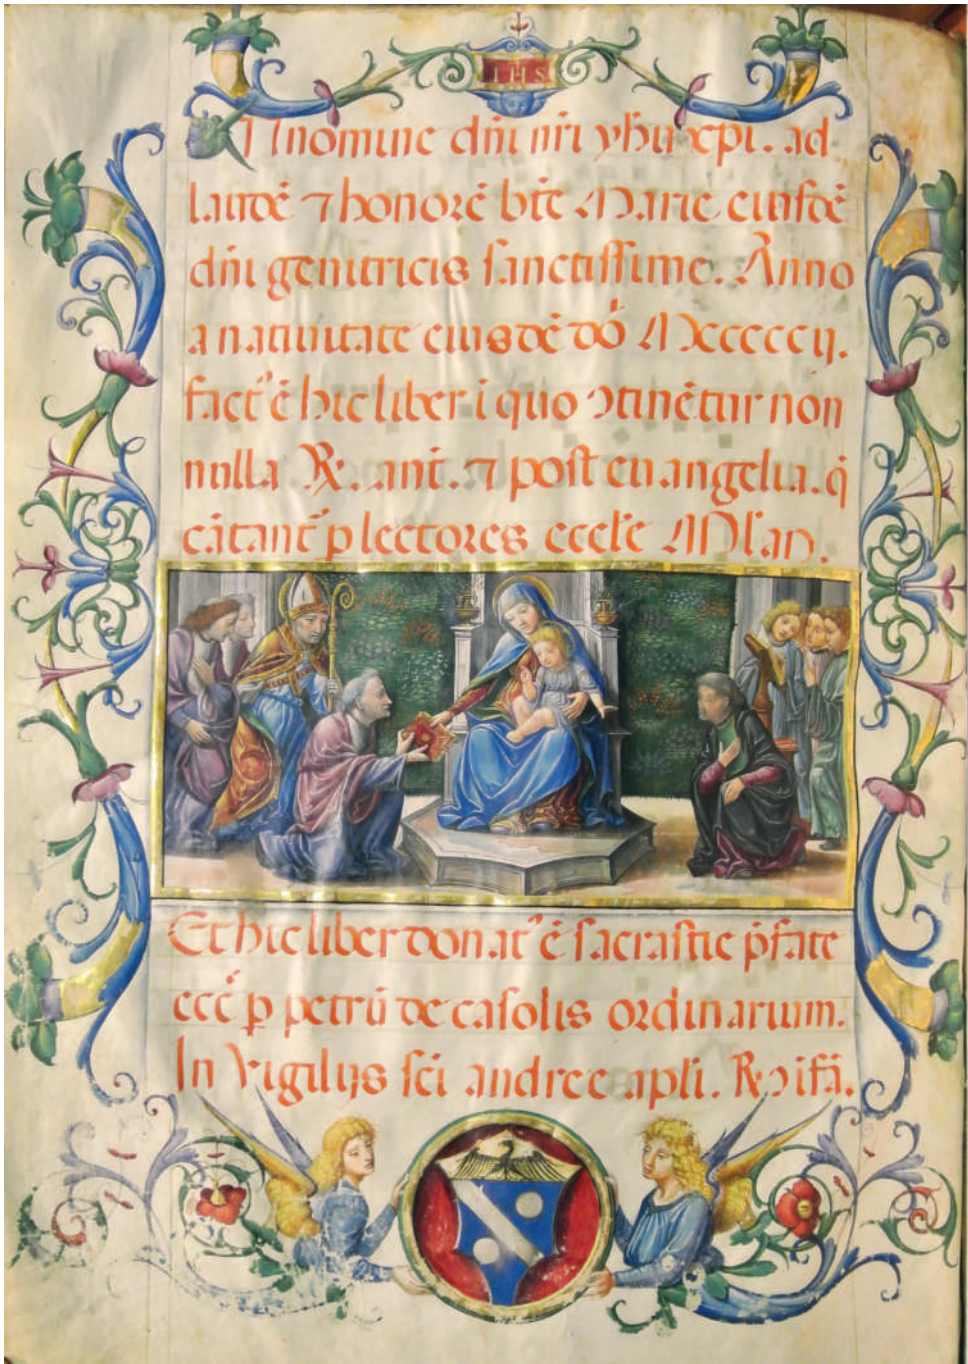 IHS
In nomine dn̄i nr̄i yħu xp̄i. ad
laudē ⁊ honorē btē Marie eiusdē
dn̄i genitricis sanctissime. Anno
a natiuitate eiusdē dō Mcccccij.
fact᷒ ē hic liber ī quo ↄtinētur non
nulla ℞. ant̄. ⁊ post euangelia. q̄
cātant᷒ ꝑ lectores eccl̄e Ml̄an.
Et hic liber donat᷒ ē sacrastie p̄fate
ecc̄ ꝑ petrū de casolis ordinarium.
In Vigilijs sc̄i andree apl̄i. ℞ ↄ ifā.